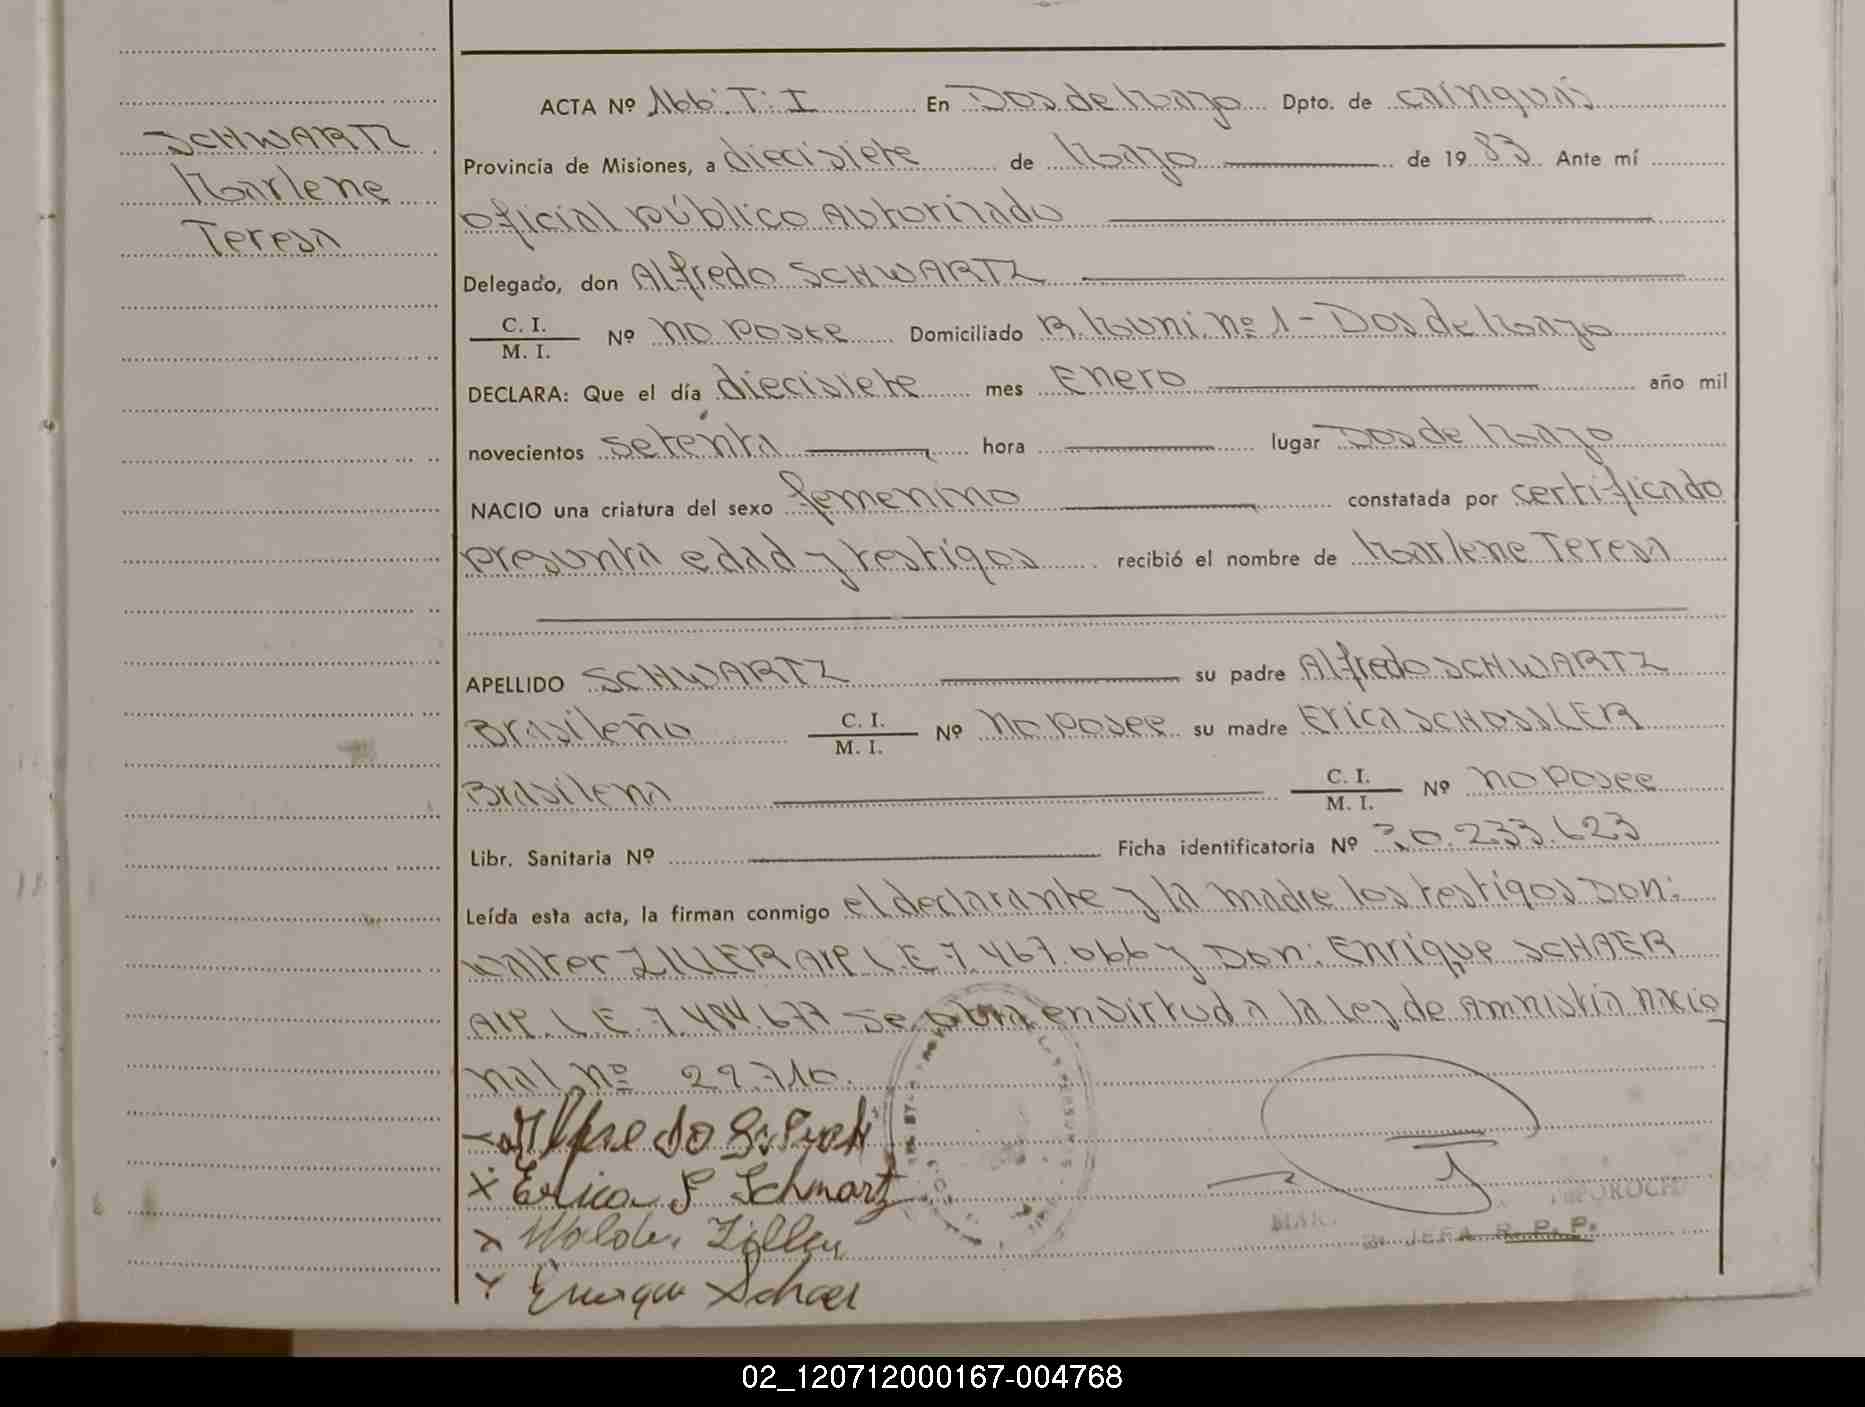 SCHWARTZ
Marlene
Teresa
ACTA Nº 166. T. I En Dos de Mayo Dpto. de cainguás
Provincia de Misiones, a diecisiete de Mayo de 1983. Ante mí
oficial público Autorizado
Delegado, don Alfredo SCHWARTZ
C. I.
M. I.
Nº no posee Domiciliado B. Muni. nº 1 - Dos de Mayo
DECLARA: Que el día diecisiete mes Enero año mil
novecientos setenta hora lugar Dos de Mayo
NACIO una criatura del sexo femenino constatada por certificado
presunta edad y testigos recibió el nombre de Marlene Teresa
APELLIDO SCHWARTZ su padre Alfredo SCHWARTZ
Brasileño C. I. M. I. Nº no posee su madre Erica SCHOSSLER
Brasilena C. I. M. I. Nº no posee
Libr. Sanitaria Nº Ficha identificatoria Nº 30.233.623
Leída esta acta, la firman conmigo el declarante y la madre los testigos Don:
Walter ZILLER L.E. 7.467.066 y Don: Enrique SCHAER
L.E. 7.484.677 se en virtud a la Ley de Amnistía nacio
nal nº 22.710.
Alfredo
x Erica S Schwartz
x Ziller
x Enrique Schaer
JEFA R. P. P.
02_120712000167-004768